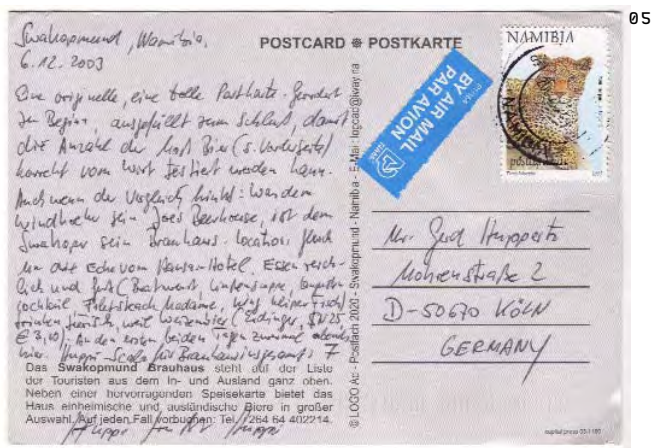 05
POSTCARD ❋ POSTKARTE
Swakopmund, Namibia,
6.12.2003
Eine originelle, eine tolle Postkarte. Geordert
zu Beginn, ausgefüllt zum Schluß, damit
die Anzahl der Bier (s. Vorderseite)
korrekt vom Wirt testiert werden kann.
Auch wenn der Vergleich hinkt: Was dem
Windhoeker sein Joes Beerhouse, ist dem
Swakoper sein Brauhaus. Location: gleich
um die Ecke vom Hansa-Hotel. Essen reich-
lich und gut (Bratwurst, Linsensuppe,
cocktail, Pfeffersteak Madame,
trinken weil Weizenbier (Erdinger,
€ 3,10). An den ersten beiden Tagen zweimal abends
hier. Huppi-Scala für Brauhaus insgesamt: 7
Das Swakopmund Brauhaus steht auf der Liste
der Touristen aus dem In- und Ausland ganz oben.
Neben einer hervorragenden Speisekarte bietet das
Haus einheimische und ausländische Biere in großer
Auswahl. Auf jeden Fall vorbuchen: Tel. 264 64 402214.
© LOGO Ad - Postfach 2020 - Swakopmund - Namibia - E-Mail: logoad@iway.na
BY AIR MAIL
PAR AVION
NAMIBIA
NAMIBIA
Mr. Gerd Huppertz
Mohrenstraße 2
D-50670 KÖLN
GERMANY